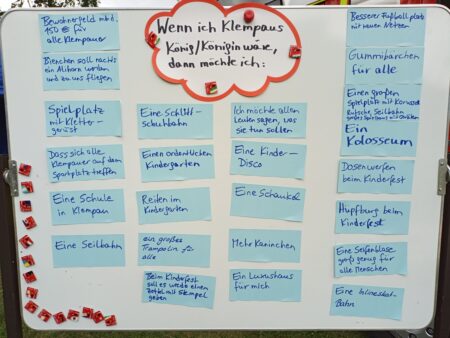 Wenn ich Klempaus
König/Königin wäre,
dann möchte ich:
Bewohnergeld mtl.
150 € für
alle Klempauer
Bienchen soll nachts
ein Alihorn werden
und zu uns fliegen
Spielplatz
mit Kletter-
gerüst
Dass sich alle
Klempauer auf dem
Sportplatz treffen
Eine Schule
in Klempau
Eine Seilbahn
Eine Schlitt-
schuhbahn
Einen ordentlichen
Kindergarten
Reiten im
Kindergarten
ein großes
Trampolin für
alle
Beim Kinderfest
soll es wieder einen
Zettel mit Stempel
geben
Ich möchte allen
Leuten sagen, was
sie tun sollen
Eine Kinder-
Disco
Eine Schaukel
Mehr Kaninchen
Ein Luxushaus
für mich
Besserer Fußballplatz
mit neuen Netzen
Gummibärchen
für alle
Einen großen
Spielplatz mit Karussell
Rutsche, Seilbahn
Ein
Kolosseum
Dosenwerfen
beim Kinderfest
Hüpfburg beim
Kinderfest
Eine Seifenblase
groß genug für
alle Menschen
Eine Inlineskat-
Bahn